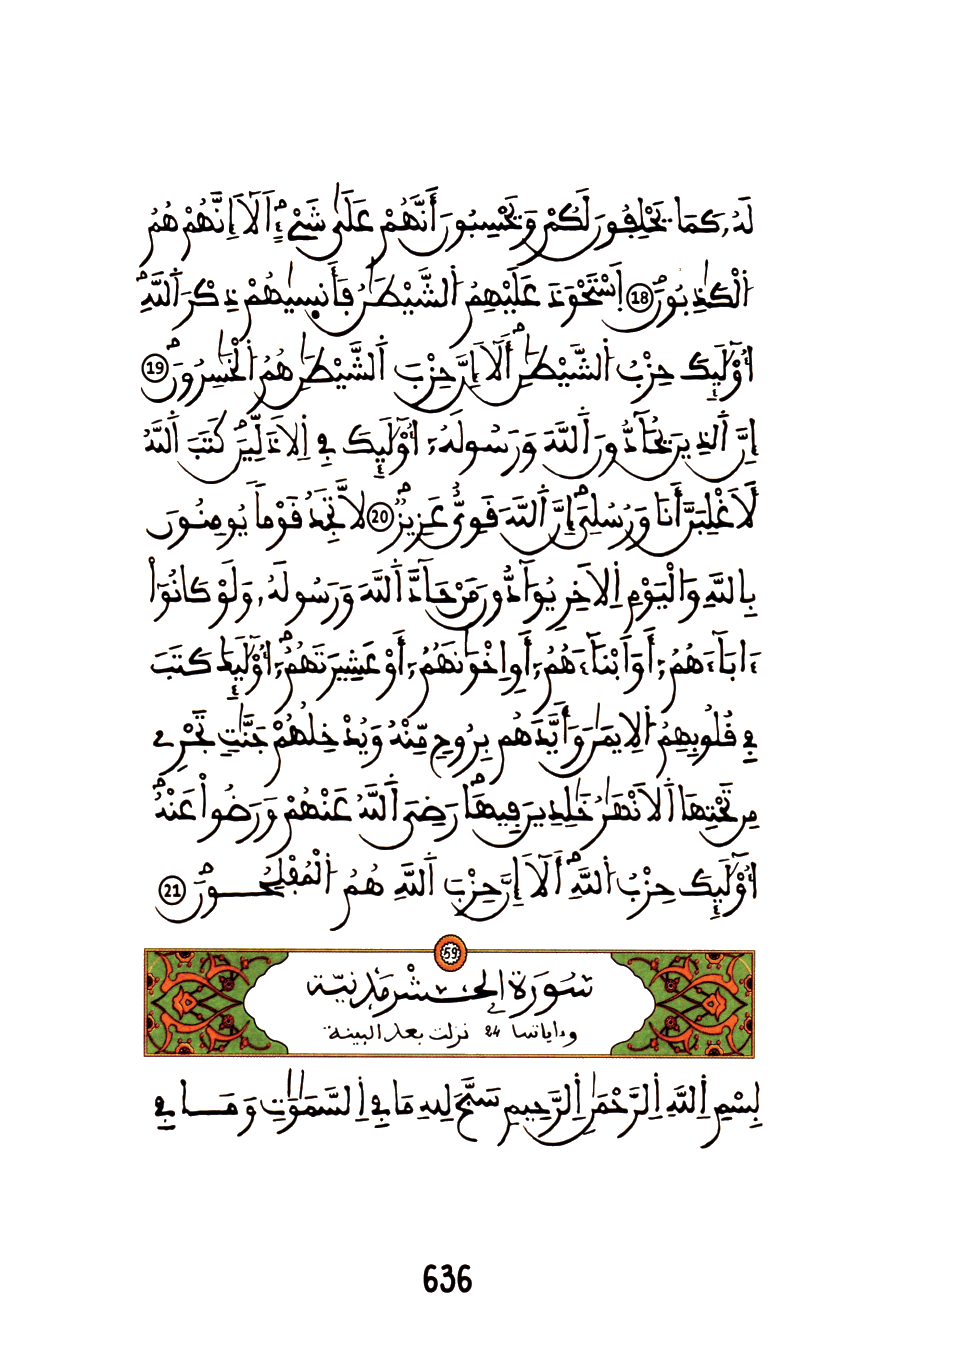 لَهُۥ كَمَا يَحْلِفُونَ لَكُمْ وَيَحْسِبُونَ أَنَّهُمْ عَلَىٰ شَےْءٍ اَلَآ إِنَّهُمْ هُمُ
اُلْكَٰذِبُونَۖ 18 اَ۪سْتَحْوَذَ عَلَيْهِمُ اُلشَّيْطَٰنُ فَأَنس۪يٰهُمْ ذِكْرَ اَللَّهِۖ
أُوْلَٰٓئِكَ حِزْبُ اُلشَّيْطَٰنِۖ أَلَآ إِنَّ حِزْبَ اَلشَّيْطَٰنِ هُمُ اُلْخَٰسِرُونَۖ 19
إِنَّ اَلذِينَ يُحَآدُّونَ اَللَّهَ وَرَسُولَهُۥٓ أُوْلَٰٓئِكَ فِے اِلَاذَلِّينَۖ كَتَبَ اَللَّهُ
لَأَغْلِبَنَّ أَنَا وَرُسُلِيَۖ إِنَّ اَللَّهَ قَوِيٌّ عَزِيزٌۖ 20 لَّا تَجِدُ قَوْماٗ يُومِنُونَ
بِاللَّهِ وَالْيَوْمِ اِلَاخِرِ يُوَآدُّونَ مَنْ حَآدَّ اَللَّهَ وَرَسُولَهُۥ وَلَوْ كَانُوٓاْ
ءَابَآءَهُمُۥٓ أَوَ اَبْنَآءَهُمُۥٓ أَوِ اِخْوَٰنَهُمُۥٓ أَوْ عَشِيرَتَهُمُۥٓۖ أُوْلَٰٓئِكَ كَتَبَ
فِے قُلُوبِهِمُ اُلِايمَٰنَ وَأَيَّدَهُم بِرُوحٖ مِّنْهُ وَيُدْخِلُهُمْ جَنَّٰتٖ تَجْرِے
مِن تَحْتِهَا اَلَانْهَٰرُ خَٰلِدِينَ فِيهَاۖ رَضِيَ اَللَّهُ عَنْهُمْ وَرَضُواْ عَنْهُۖ
أُوْلَٰٓئِكَ حِزْبُ اُللَّهِۖ أَلَآ إِنَّ حِزْبَ اَللَّهِ هُمُ اُلْمُفْلِحُونَۖ 21
59
سُورَةُ الحَشْرِ مَدَنِيَّة
وءاياتها 24 نزلت بعد البينة
بِسْمِ اِللَّهِ اِلرَّحْمَٰنِ اِلرَّحِيمِ سَبَّحَ لِلهِ مَا فِے اِلسَّمَٰوَٰتِ وَمَا فِے
636